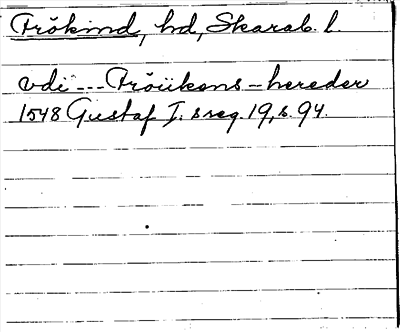 Frökind, hd, Skarab. l.
vdi --- Fröükens-hereder
1548 Gustaf I:s reg. 19, s. 94.